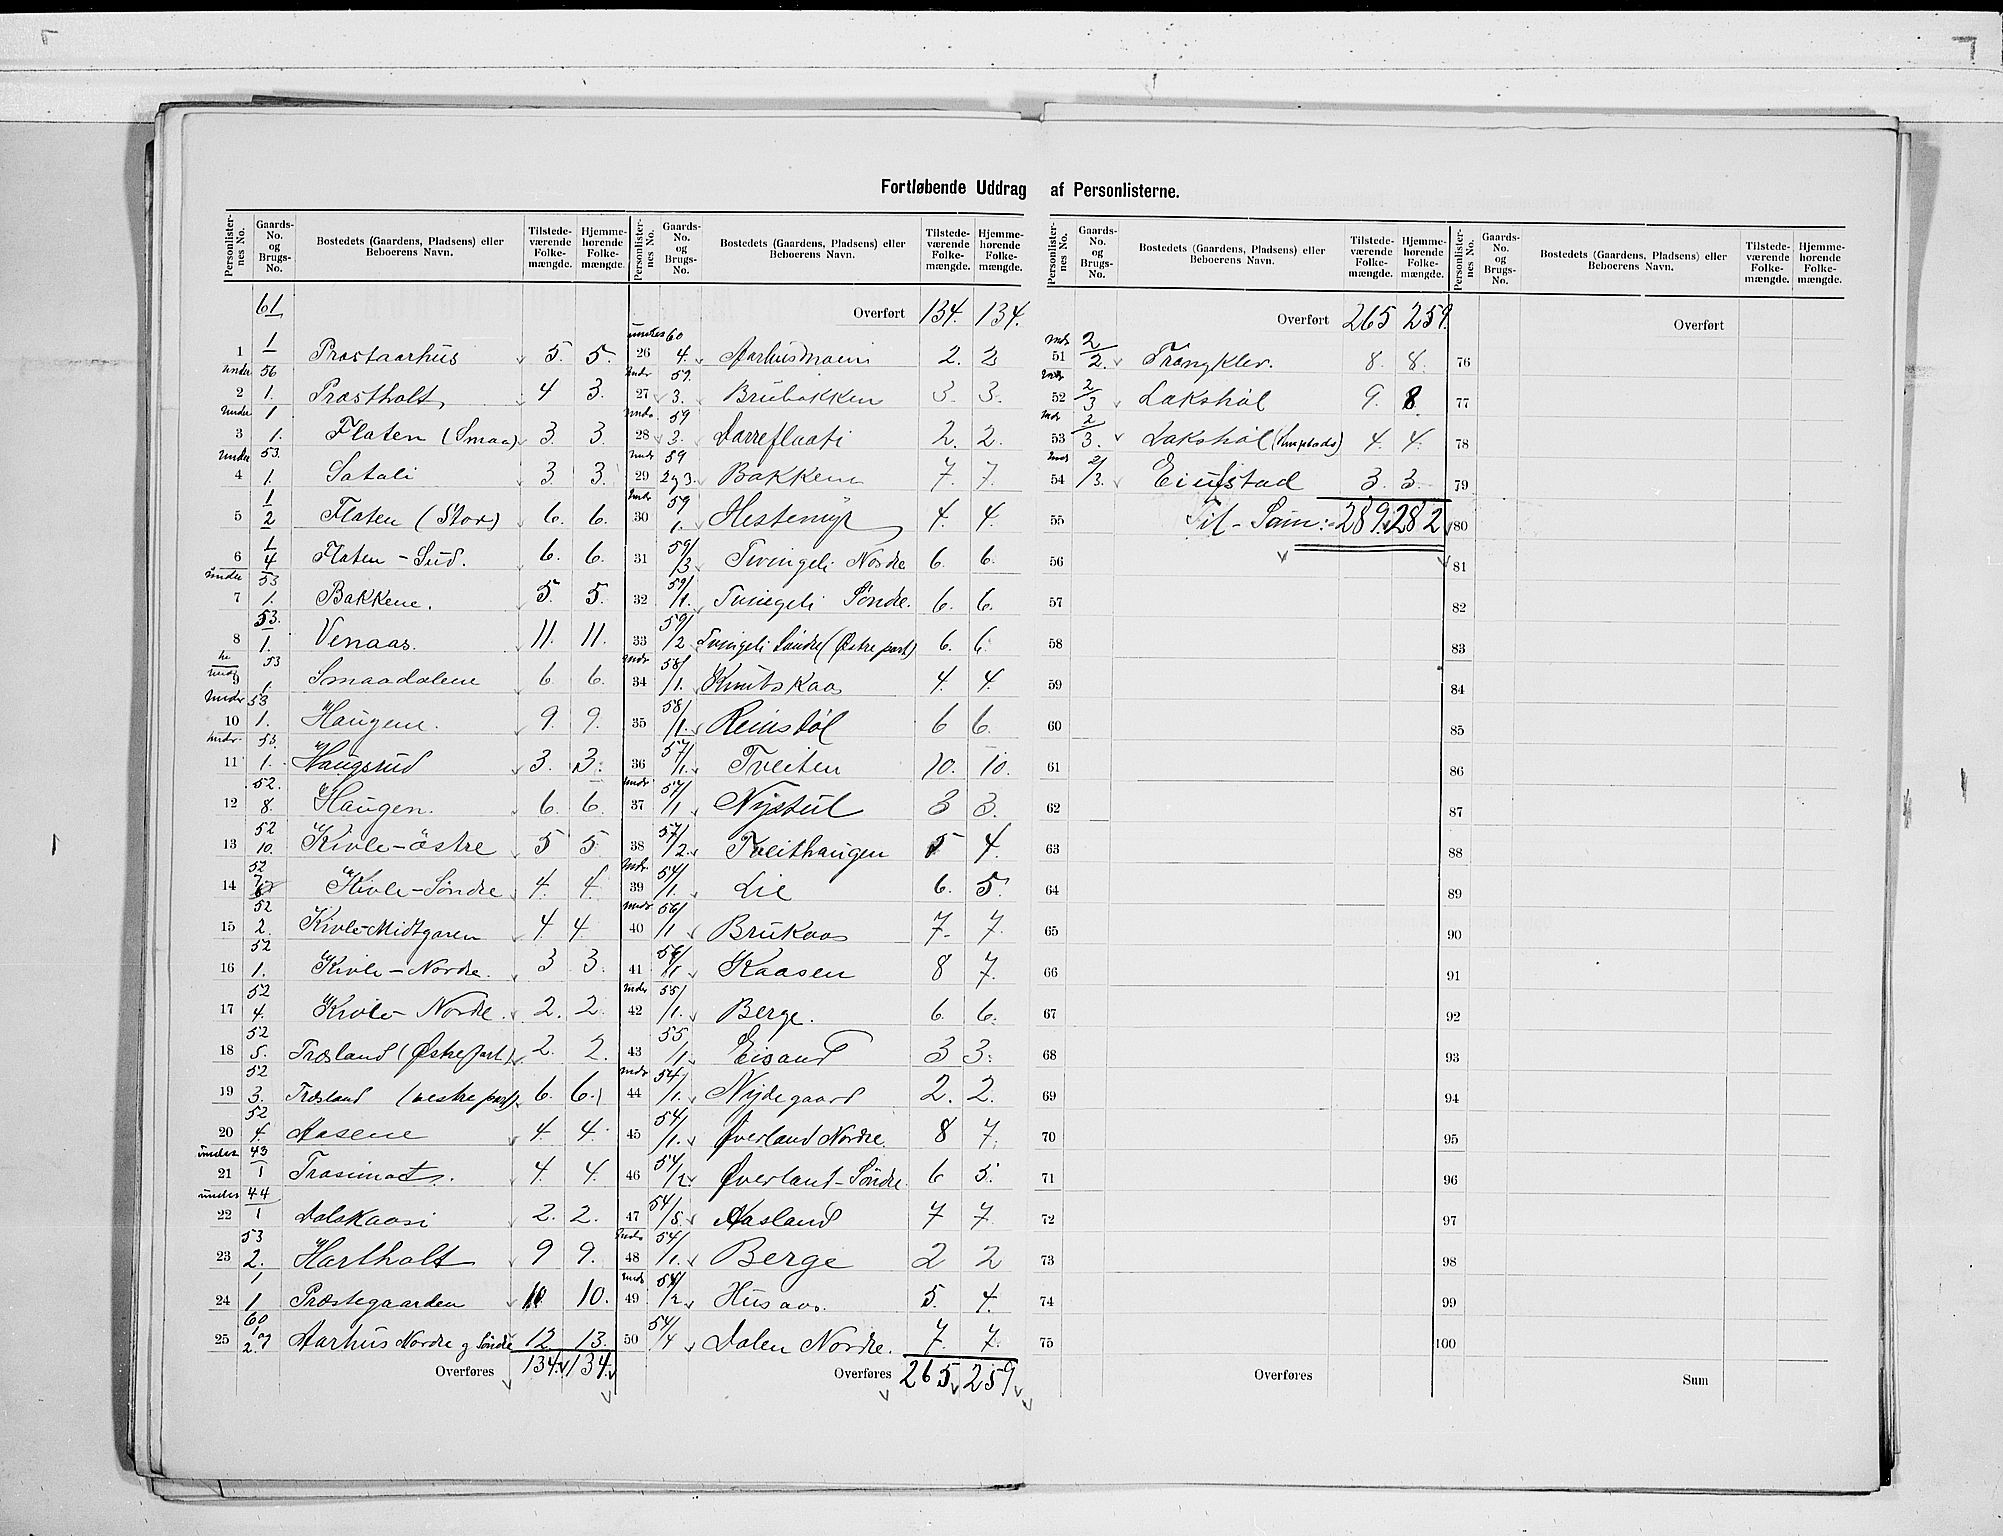 Fortløbende Uddrag af Personlisterne.
Personlister-nes No. Gaards-No. og Brugs-No. Bostedets (Gaardens, Pladsens) eller Beboerens Navn. Tilstede-værende Folke-mængde. Hjemme-hørende Folke-mængde.
61
1 1 Præstaarhus 5. 5.
under 56
2 1. Præstholt 4 3.
under 1
3 1. Flaten (Smaa) 3. 3.
under 53.
4 1. Satali 3. 3.
1
5 2 Flaten (Stor) 6. 6.
1
6 4 Flaten - Sud. 6. 6.
under 53
7 1. Bakkene. 5. 5.
53.
8 1. Venaas. 11. 11.
undr 53
9 1. Smaadalene 6. 6.
under 53
10 1. Haugene. 9. 9.
undr. 53.
11 1. Haugsrud 3. 3.
52.
12 8. Haugen. 6. 6.
52
13 10. Kivle-östre 5 5.
52
14 7 Kivle-Søndre 4. 4.
52
15 2. Kivle-Midtgaren 4 4.
52
16 1. Kivle-Nordre. 3 3.
52
17 4. Kivle-Nordre. 2. 2.
52
18 5. Træland (Østre part) 2. 2.
52
19 3. Træland (vestre part) 6. 6.
52
20 4. Aasene 4. 4.
under 43
21 1 Trasimot. 4. 4.
under 44
22 1 Dalskaasi 2. 2.
53
23 2. Hartholt 9 9.
1
24 1. Præstegaarden 10 10.
60
25 1 og 2. Aarhus Nordre og Søndre 12. 13.
Overføres 134. 134.
Personlister-nes No. Gaards-No. og Brugs-No. Bostedets (Gaardens, Pladsens) eller Beboerens Navn. Tilstede-værende Folke-mængde. Hjemme-hørende Folke-mængde.
Overført 134. 134.
under 60
26 4. Aarhusmoen 2. 2
undr 59.
27 3. Brubakken 3. 3.
undr 59
28 3. Darreflaati 2. 2.
undr 59
29 2 og 3. Bakken 7. 7.
undr 59
30 1. Hestemyr 4. 4.
31 59/3 Tvingeli Nordre 6. 6.
32 59/1. Tvingeli Søndre. 6. 6.
33 59/2 Tvingeli Søndre (Østre part) 6. 6.
undr
34 58/1. Knutskaas 4. 4.
35 58/1. Reinsdøl 6 6.
36 57/1. Tveiten 10. 10.
undr
37 57/1 Nystul 3 3.
38 57/2. Tveithaugen 5 4.
undr
39 54/1. Lie 6. 5.
undr
40 56/1 Brukaas 7. 7.
41 56/1 Kaasen 8 7.
under
42 55/1. Berge. 6. 6.
43 55/1. Eisand 3 3.
undr
44 54/1. Nydegaard 2. 2.
45 54/1. Øverland Nordre 8 7.
46 54/2. Øverland-Söndre. 6 5.
47 54/5. Aasland 7 7.
undr
48 54/1. Berge 2 2
undr
49 54/2 Husaas. 5. 4.
50 54/4 Dalen Nordre. 7. 7.
Overføres 265 259
Personlister-nes No. Gaards-No. og Brugs-No. Bostedets (Gaardens, Pladsens) eller Beboerens Navn. Tilstede-værende Folke-mængde. Hjemme-hørende Folke-mængde.
Overført 265 259.
undr
51 2/2. Trangklev. 8. 8.
undr
52 2/3 Lakshøl 9. 8.
undr
53 2/3. Lakshøl 4. 4.
undr
54 2/3. Eiustad 3. 3.
55 Til-Sam:- 289. 282
56
57
58
59
60
61
62
63
64
65
66
67
68
69
70
71
72
73
74
75
Overføres
Personlister-nes No. Gaards-No. og Brugs-No. Bostedets (Gaardens, Pladsens) eller Beboerens Navn. Tilstede-værende Folke-mængde. Hjemme-hørende Folke-mængde.
Overført
76
77
78
79
80
81
82
83
84
85
86
87
88
89
90
91
92
93
94
95
96
97
98
99
100
Sum